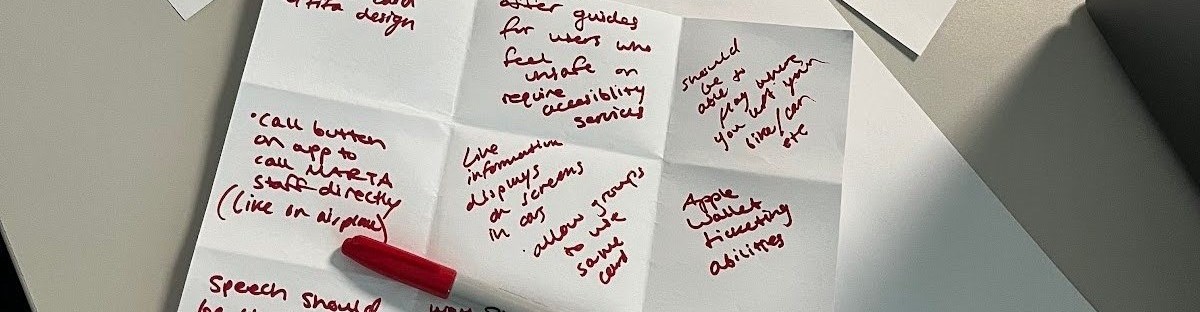 card
fifa design
offer guides
for users who
feel
unsafe or
require
accesiblity
services
should
be
able to
flag where
you want your
bike/car
etc
• Call button
on app to
call MARTA
staff directly
(like on airplane)
Live
information
displays
on screens
in cars
• allow groups
to use
same
card
Apple
Wallet
ticketing
abilities
Speech should